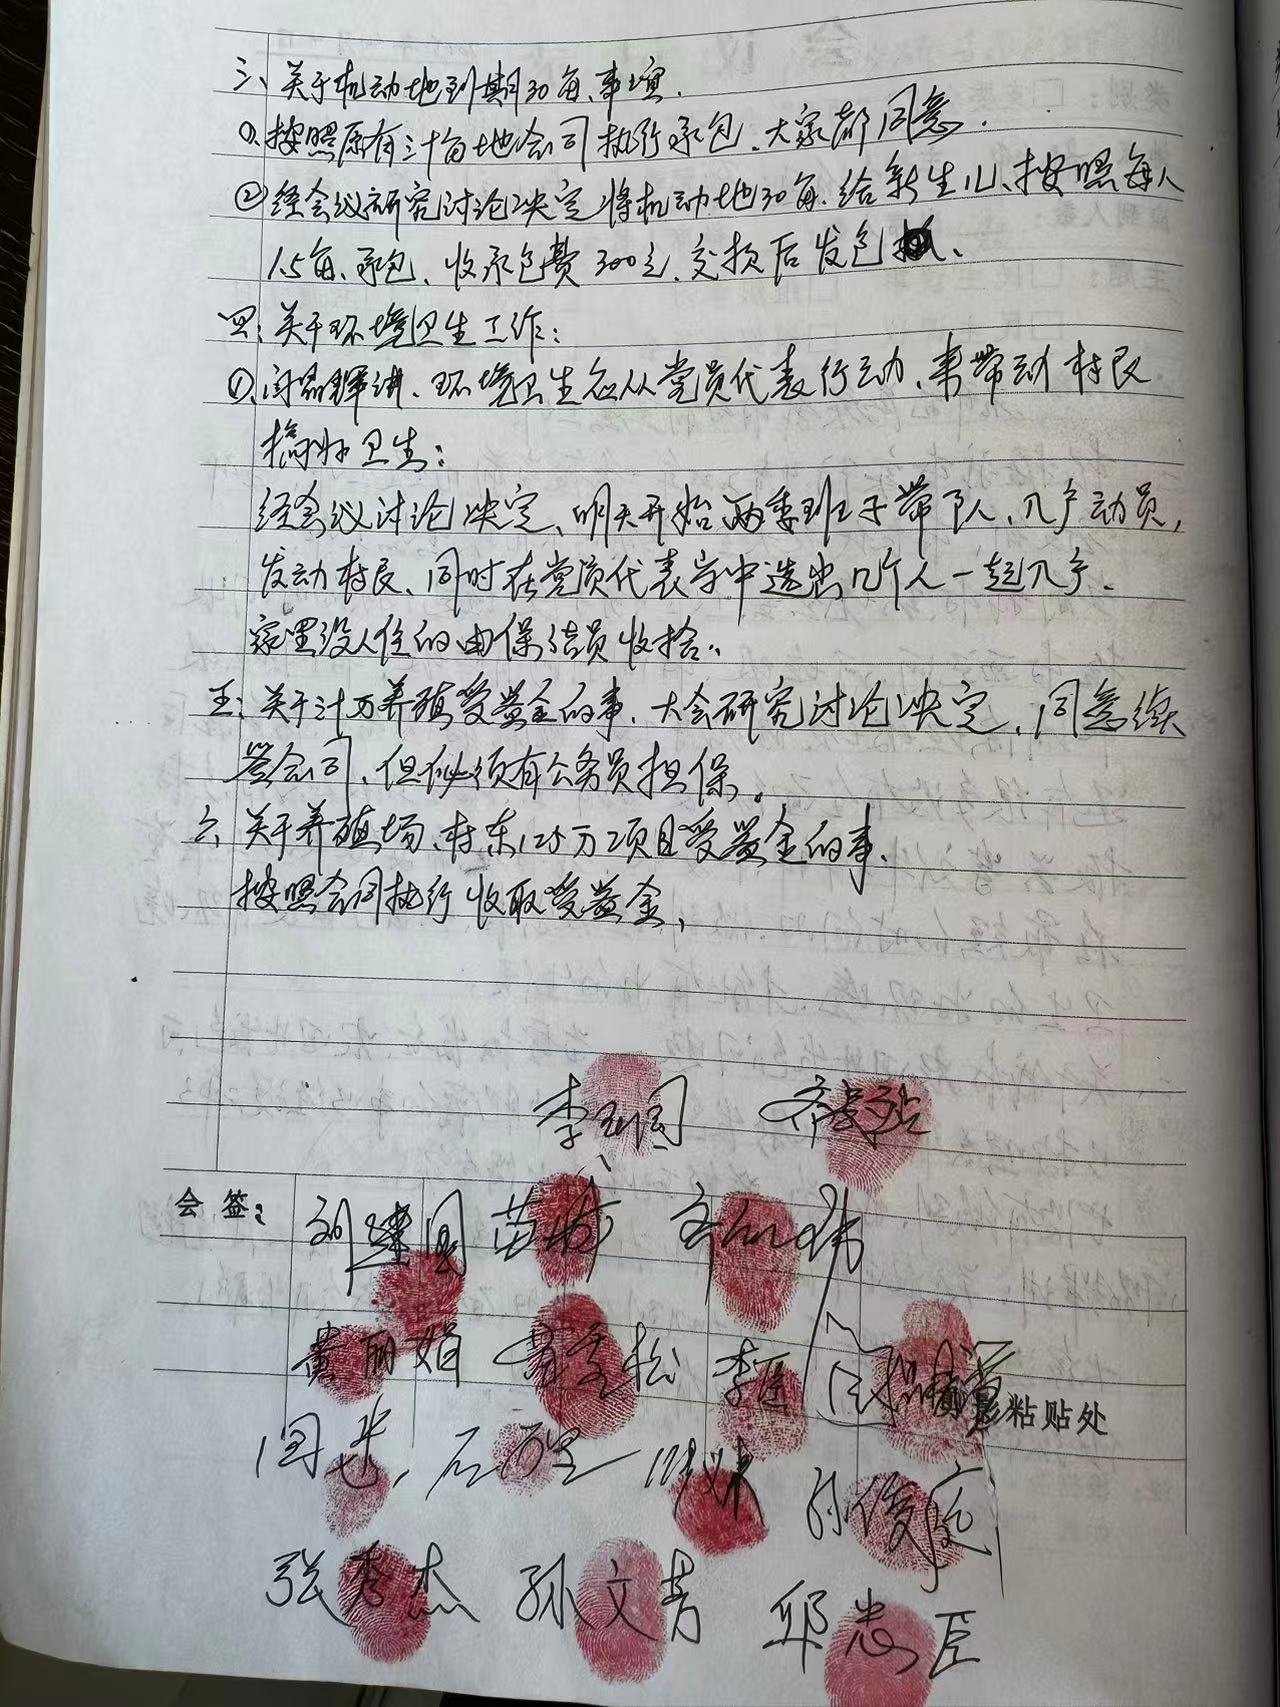 三、关于机动地到期30亩事项.
①、按照原有三十亩地合同执行承包、大家都同意.
②经会议研究讨论决定将机动地30亩、给新生儿、按照每人
1.5亩、承包、收承包费300元、交款后发包
四、关于环境卫生工作:
①、闫 讲、环境卫生应从党员代表行动、来带动村民
搞好卫生:
经会议讨论决定、明天开始两委班子带队、入户动员,
发动村民、同时在党员代表 中选出几个人一起入户.
家里没人住的由保洁员收拾.
五、关于 万养殖受益金的事、大会研究讨论决定、同意续
签合同、但必须有公务员担保。
六、关于养殖场、村东125万项目受益金的事、
按照合同执行收取受益金,
李玉国 齐
会签: 刘建国 苗
黄丽娟 松 李 粘贴处
闫 石 孙俊庭
张秀杰 孙文芳 邱忠臣